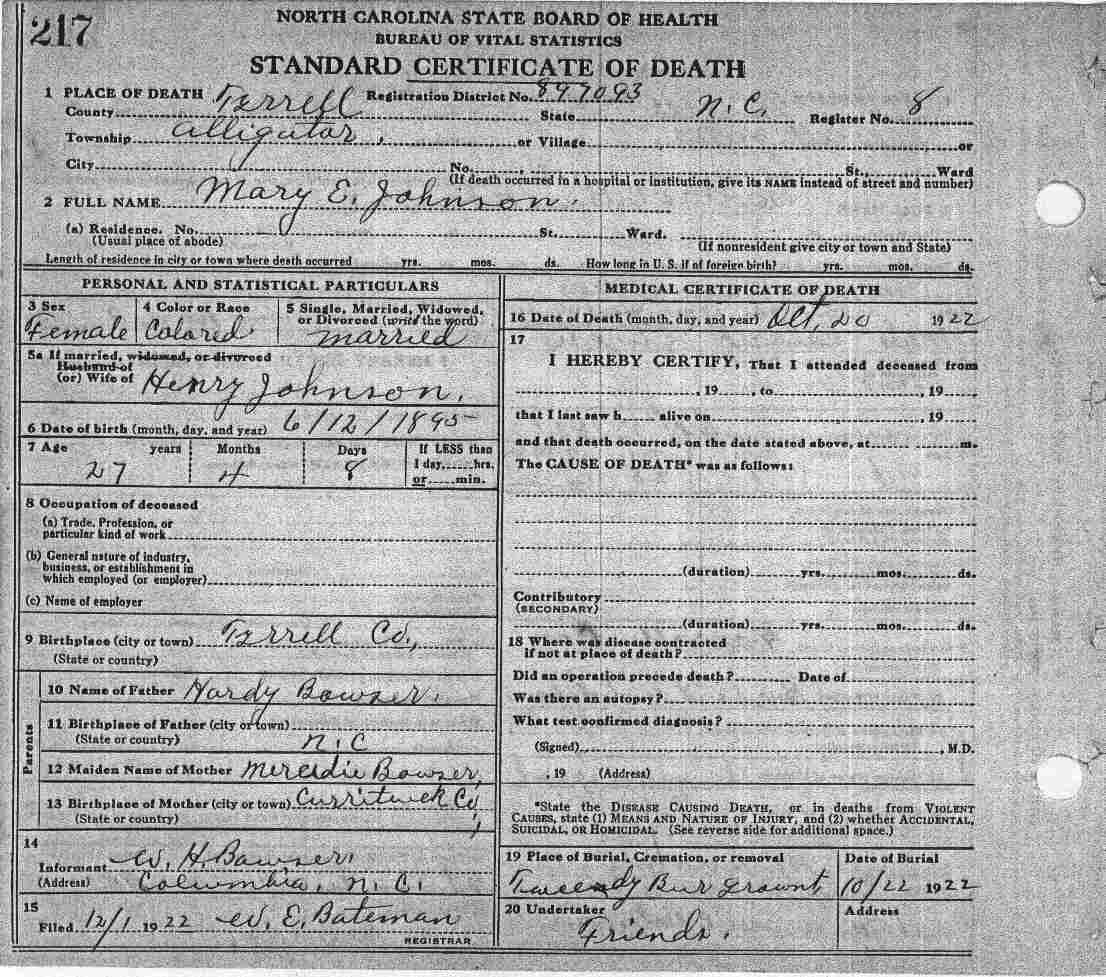 217
NORTH CAROLINA STATE BOARD OF HEALTH
BUREAU OF VITAL STATISTICS
STANDARD CERTIFICATE OF DEATH
1 PLACE OF DEATH
County Tyrrell Registration District No. 897093 State N.C. Register No. 8
Township Alligator, or Village or
City No. St., Ward
(If death occurred in a hospital or institution, give its NAME instead of street and number)
2 FULL NAME Mary E. Johnson.
(a) Residence. No. St. Ward.
(Usual place of abode) (If nonresident give city or town and State)
Length of residence in city or town where death occurred yrs. mos. ds. How long in U. S. if of foreign birth? yrs. mos. ds.
PERSONAL AND STATISTICAL PARTICULARS
3 Sex 4 Color or Race 5 Single, Married, Widowed,
or Divorced (write the word)
Female Colored married
5a If married, widowed, or divorced
Husband of
(or) Wife of Henry Johnson.
6 Date of birth (month, day, and year) 6/12/1895
7 Age years Months Days If LESS than
1 day, hrs.
27 4 8 or min.
8 Occupation of deceased
(a) Trade, Profession, or
particular kind of work
(b) General nature of industry,
business, or establishment in
which employed (or employer)
(c) Name of employer
9 Birthplace (city or town) Tyrrell Co,
(State or country)
Parents
10 Name of Father Hardy Bowser.
11 Birthplace of Father (city or town)
(State or country) N.C
12 Maiden Name of Mother Bowser,
13 Birthplace of Mother (city or town) Co,
(State or country)
14
Informant W. H. Bowser.
(Address) Columbia, N.C.
15
Filed 12/1 1922 W. E. Bateman
REGISTRAR
MEDICAL CERTIFICATE OF DEATH
16 Date of Death (month, day, and year) Oct, 20 1922
17
I HEREBY CERTIFY, That I attended deceased from
, 19 , to , 19
that I last saw h alive on , 19
and that death occurred, on the date stated above, at m.
The CAUSE OF DEATH* was as follows:
(duration) yrs. mos. ds.
Contributory
(SECONDARY)
(duration) yrs. mos. ds.
18 Where was disease contracted
if not at place of death?
Did an operation precede death? Date of
Was there an autopsy?
What test confirmed diagnosis?
(Signed) , M.D.
, 19 (Address)
*State the DISEASE CAUSING DEATH, or in deaths from VIOLENT
CAUSES, state (1) MEANS AND NATURE OF INJURY, and (2) whether ACCIDENTAL,
SUICIDAL, OR HOMICIDAL. (See reverse side for additional space.)
19 Place of Burial, Cremation, or removal Date of Burial
Bur 10/22 1922
20 Undertaker Address
Friends.